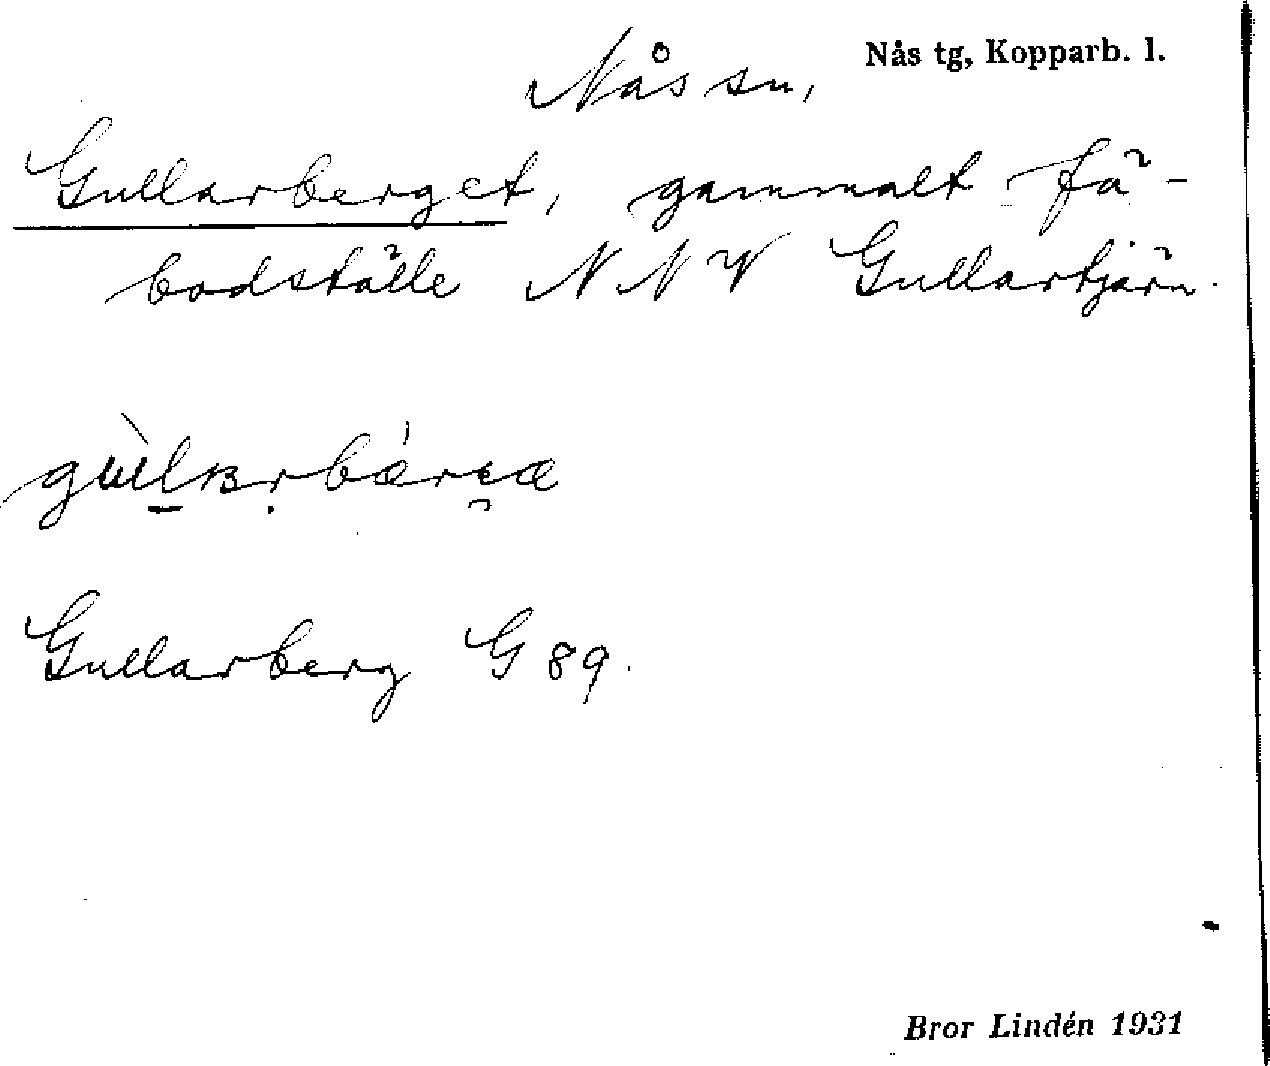 Nås tg, Kopparb. l.
Nås sn,
Gullarberget, gammalt fä-
bodställe NNV Gullartjärn.
Gullarberg G 89.
Bror Lindén 1931